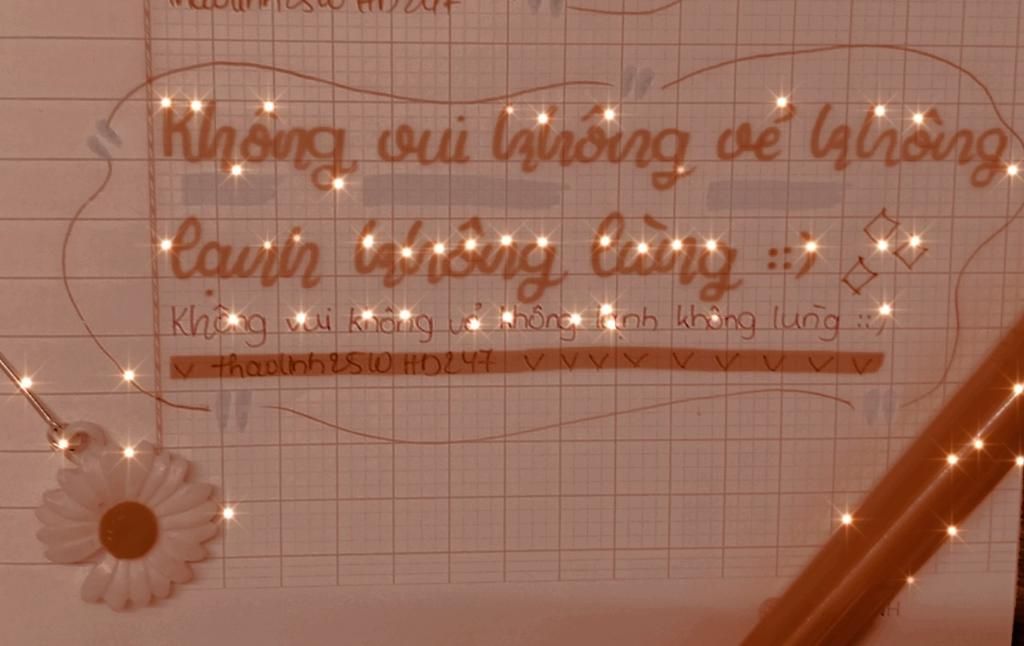 thaolinh25IO HD247
Không vui không vẻ không
lạnh không lùng ::)
Không vui không vẻ không lạnh không lùng ::)
thaolinh25IO HD247